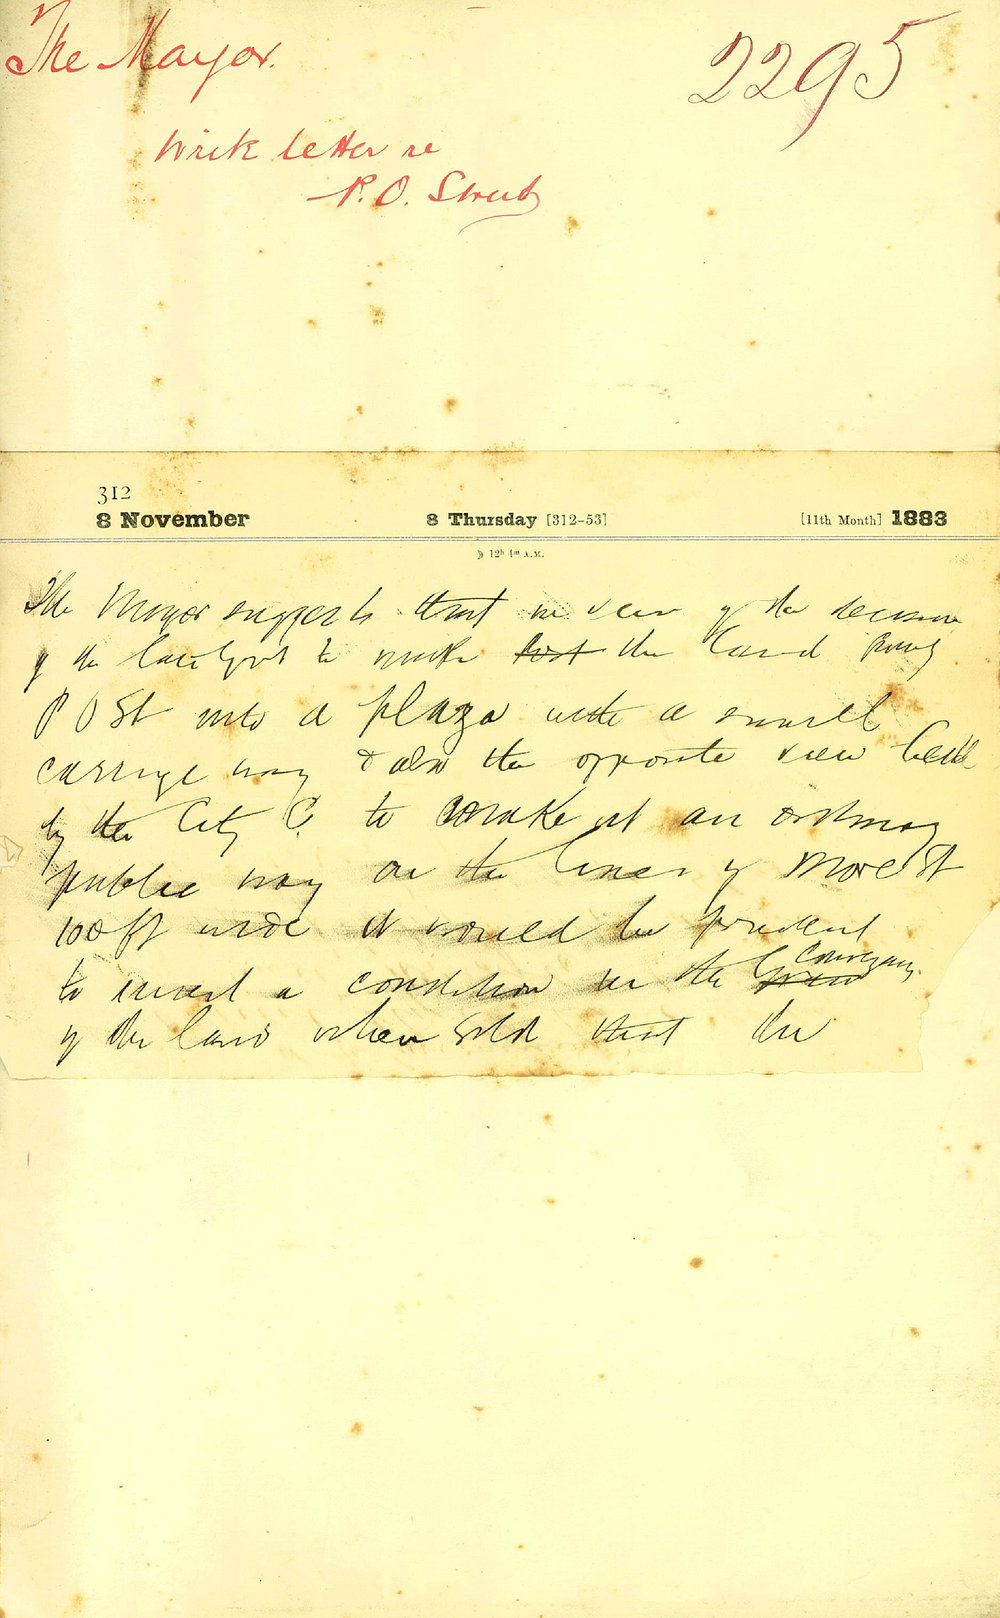 The Mayor.
2295
Write letter re
P.O. Street
312
8 November 8 Thursday [312-53] [11th Month] 1883
12h 4m A.M.
The Mayor suggests that in view of the decision
of the late Govt to make the land
P O St into a plaza with a small
carriage way & also the opposite view held
by the City C. to make it an ordinary
public way on the lines of Moore St
100 ft wide it would be prudent
to insert a condition in the Conveyance
of the land when sold that the